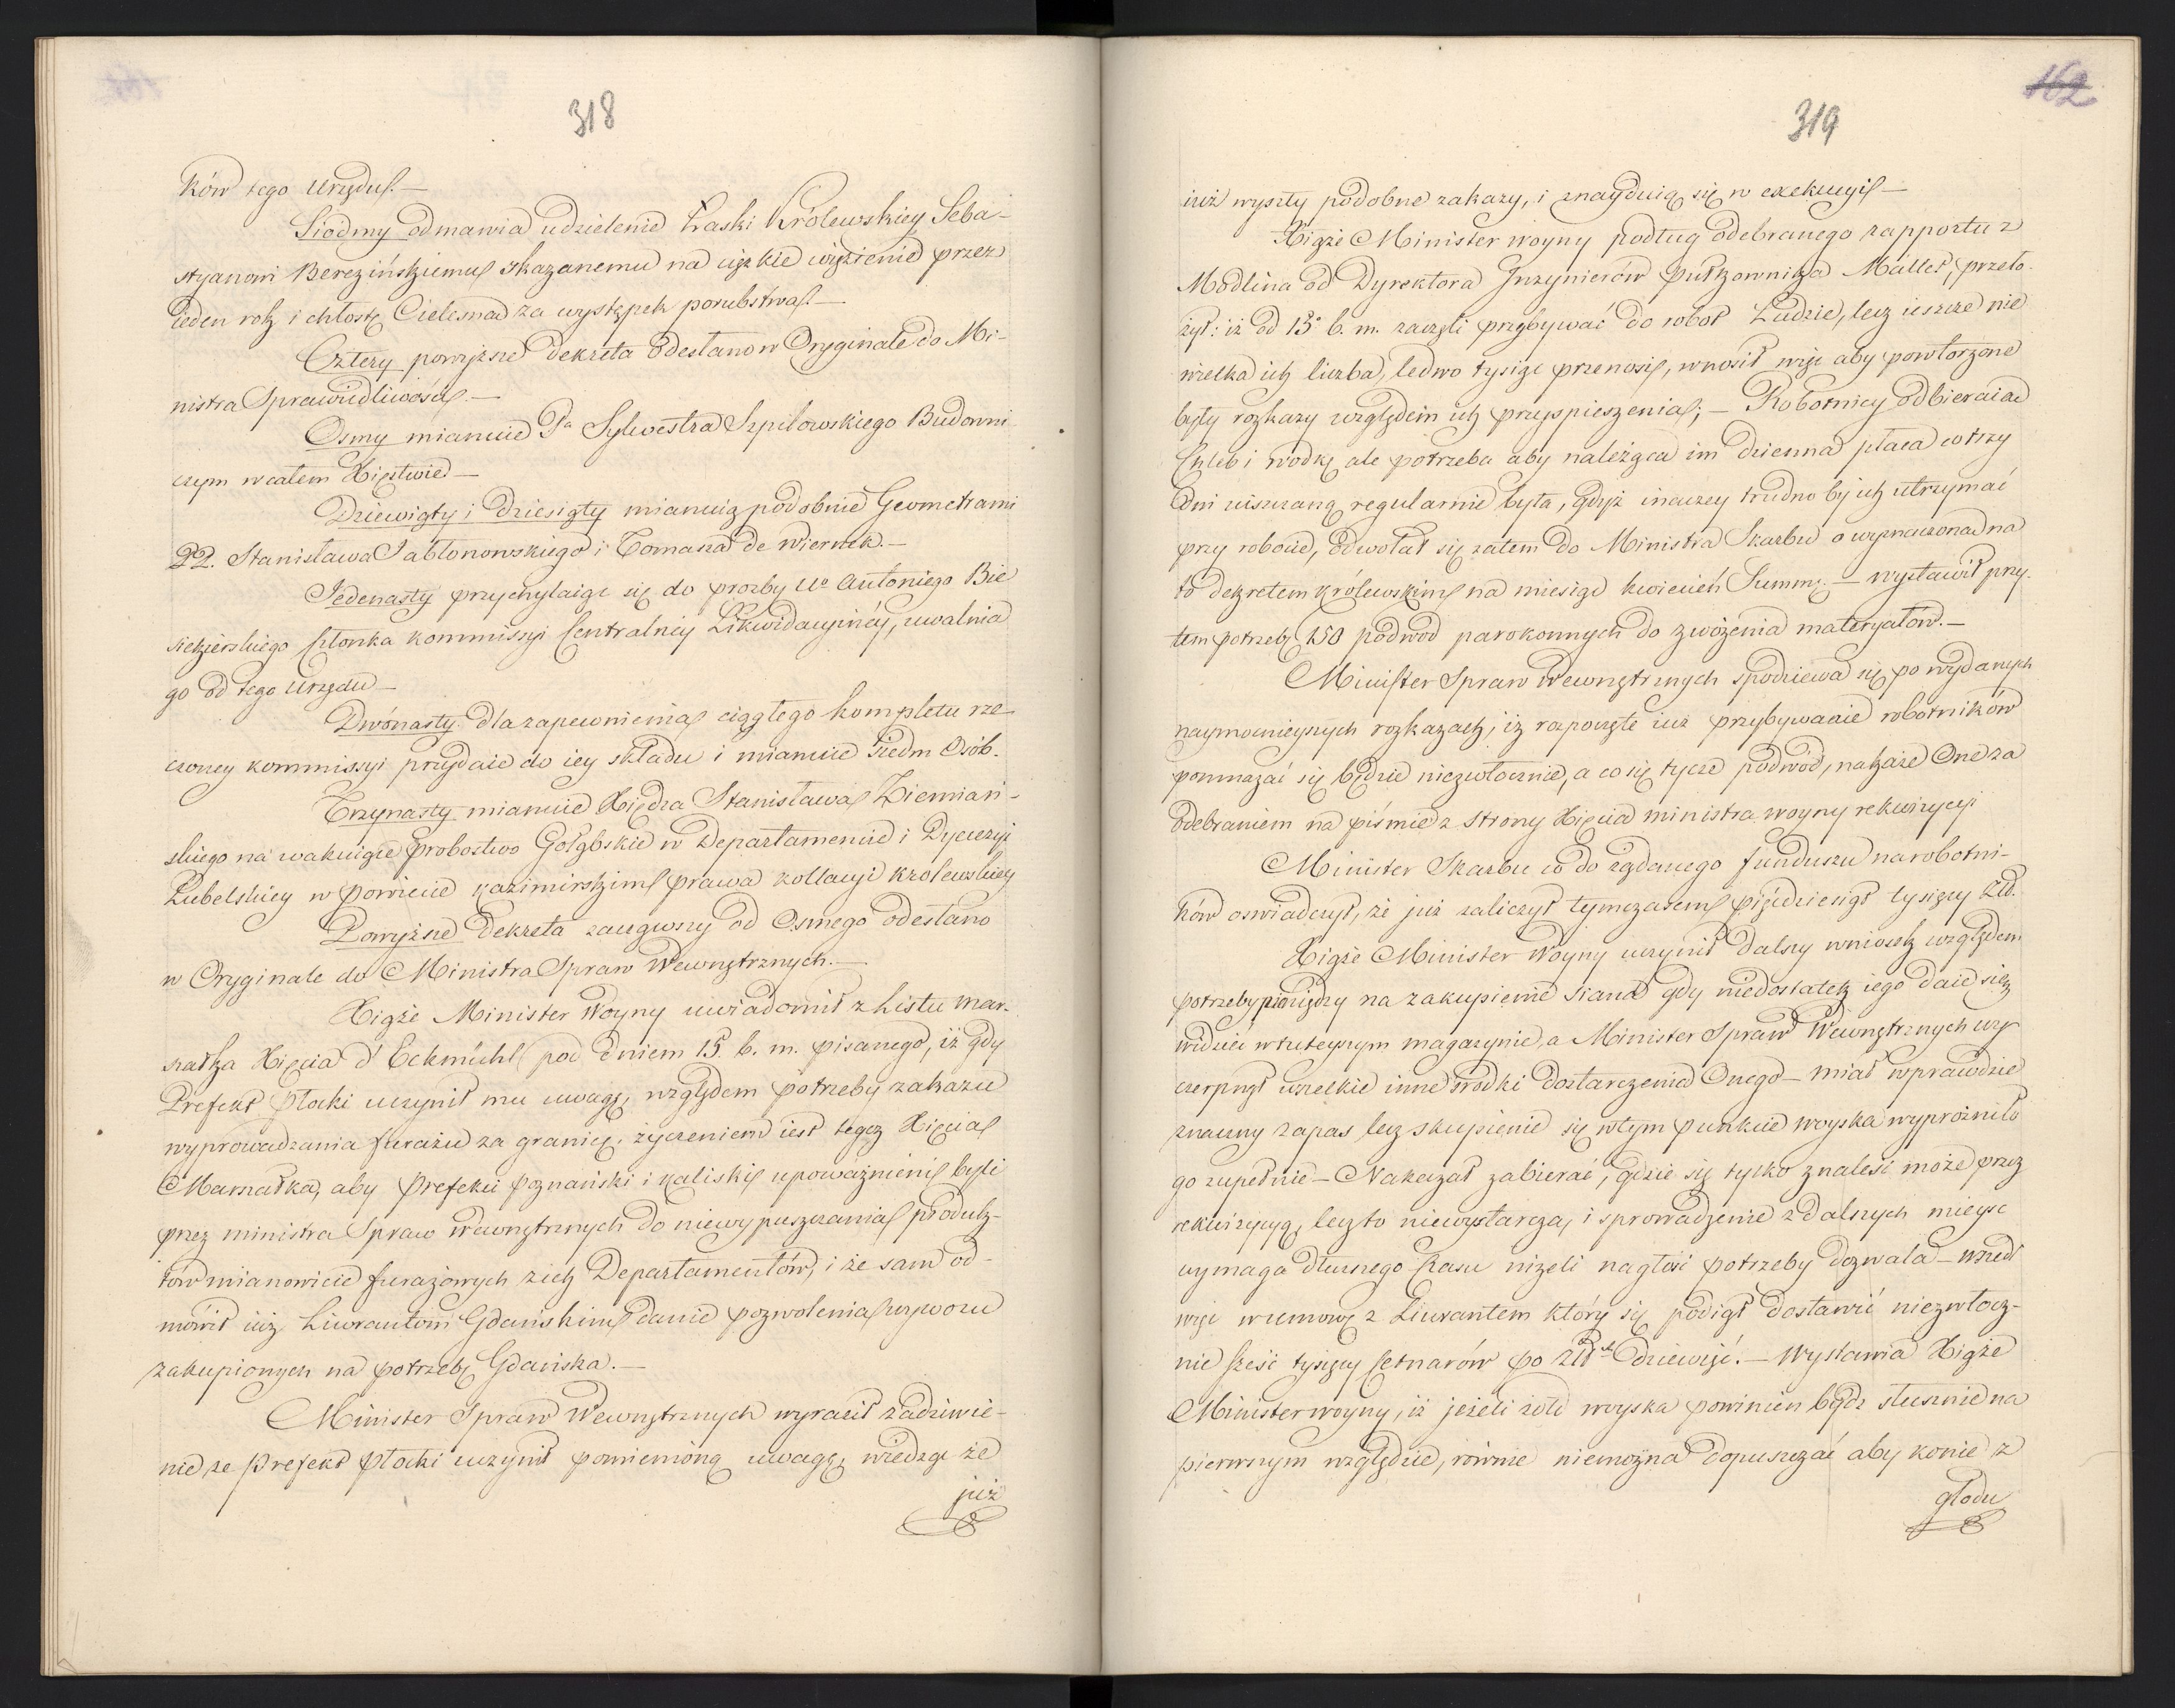 318
ków tego Urzędu.—
Siódmy odmawia udzielenie Łaski Królewskiey Seba-
styanowi Berezińskiemu skazanemu na ciężkie więzienie przez
ieden rok i chłostę Cielesną za występek porubstwa.—
Cztery powyższe Dekreta odesłano w Oryginale do Mi-
nistra Sprawiedliwości.—
Osmy mianuie Pa Sylwestra Szpilowskiego Budowni-
czym w całem Xięstwie—
Dziewiąty i Dziesiąty mianuią podobnie Geometrami
PP. Stanisława Jabłonowskiego i Tomasza de Wiernek.—
Jedenasty przychylaiąc się do prozby Uo Antoniego Bie
siekierskiego Członka kommissyi Centralney Likwidacyiney, uwalnia
go od tego Urzędu—
Dwónasty dla zapewnienia ciągłego kompletu rze-
czoney kommissyi przydaie do iey składu i mianuie siedm Osób.
Trzynasty mianuie Xiędza Stanisława Ziemiań-
skiego na wakuiące probostwo Gołąbskie w Departamencie i Dyecezyi
Lubelskiey w powiecie kazimirskim prawa kollacyi królewskiey
Powyższe Dekreta zacząwszy od Osmego odesłano
w Oryginale do Ministra Spraw Wewnętrznych.—
Xiąże Minister Woyny uwiadomił z Listu Mar-
szałka Xięcia d'Eckmühl pod dniem 15. b. m. pisanego, iż gdy
Prefekt Płocki uczynił mu uwagę, względem potrzeby zakazu
wyprowadzania furażu za granicę, życzeniem iest tegoż Xięcia
Marszałka, aby Prefekci poznański i kaliski upoważnieni byli
przez ministra Spraw Wewnętrznych do niewypuszczania produk-
tów mianowicie furażowych z ich Departamentów, i że sam od-
mówił iuż Liwrantom Gdańskim danie pozwolenia wywozu
zakupionych na potrzebę Gdańska.—
Minister Spraw Wewnętrznych wyraził zadziwie-
nie że Prefekt Płocki uczynił pomienioną uwagę, wiedząc że
już
162
319
iuż wyszły podobne zakazy, i znayduią się w exekucyi—
Xiąże Minister woyny podług odebranego rapportu z
Modlina od Dyrektora Inżynierów Pułkownika Mallet, przeło-
żył: iż od 13o b. m. zaczęli przybywać do robot Ludzie, lecz ieszcze nie
wielka ich liczba, ledwo tysiąc przenosi, wnosił więc aby powtorzone
były rozkazy względem ich przyspieszenia;— Robotnicy odbieraią
Chleb i wodkę ale potrzeba aby należąca im dzienna płaca co trzy
dni uiszczaną regularnie była, gdyż inaczey trudno by ich utrzymać
przy robocie, odwołał się zatem do Ministra Skarbu o wyznaczoną na
to dekretem królewskim na miesiąc kwiecień Summę.— wystawił przy-
tem potrzebę 250 podwod parokonnych do zwożenia materyałów.—
Minister Spraw Wewnętrznych spodziewa się po wydanych
naymocnieyszych rozkazach, iż rozpoczęte iuż przybywanie robotników
pomnażać się będzie niezwłocznie, a co się tycze podwód, nakaże One za
odebraniem na piśmie z strony Xięcia ministra woyny rekwizycyi
Minister Skarbu co do żądanego funduszu na robotni-
ków oświadczył, że już zaliczył tymczasem pięćdziesiąt tysięcy Złł.
Xiąże Minister Woyny uczynił dalszy wniosek względem
potrzeby pieniędzy na zakupienie siana gdy niedostatek iego daie się
widzieć w tuteyszym magazynie, a Minister Spraw Wewnętrznych wy-
czerpnął wszelkie inne środki dostarczenia Onego— miał wprawdzie
znaczny zapas lecz skupienie się w tym punkcie woyska wyprózniło
go zupełnie— Nakazał zabierać, gdzie się tylko znaleść może przez
rekwizycyą, lecz to niewystarcza, i sprowadzenie z dalszych mieysc
wymaga dłuższego Czasu niżeli nagłość potrzeby dozwala— wszedł
więc w umowę z Liwrantem który się podiął dostawić niezwłocz-
nie sześć tysięcy Cetnarów po Złł. dziewięć.— Wystawia Xiąże
Minister woyny, iż jeżeli żołd woyska powinien bydź słusznie na
pierwszym względzie, równie niemożna dopuszczać aby konie z
głodu